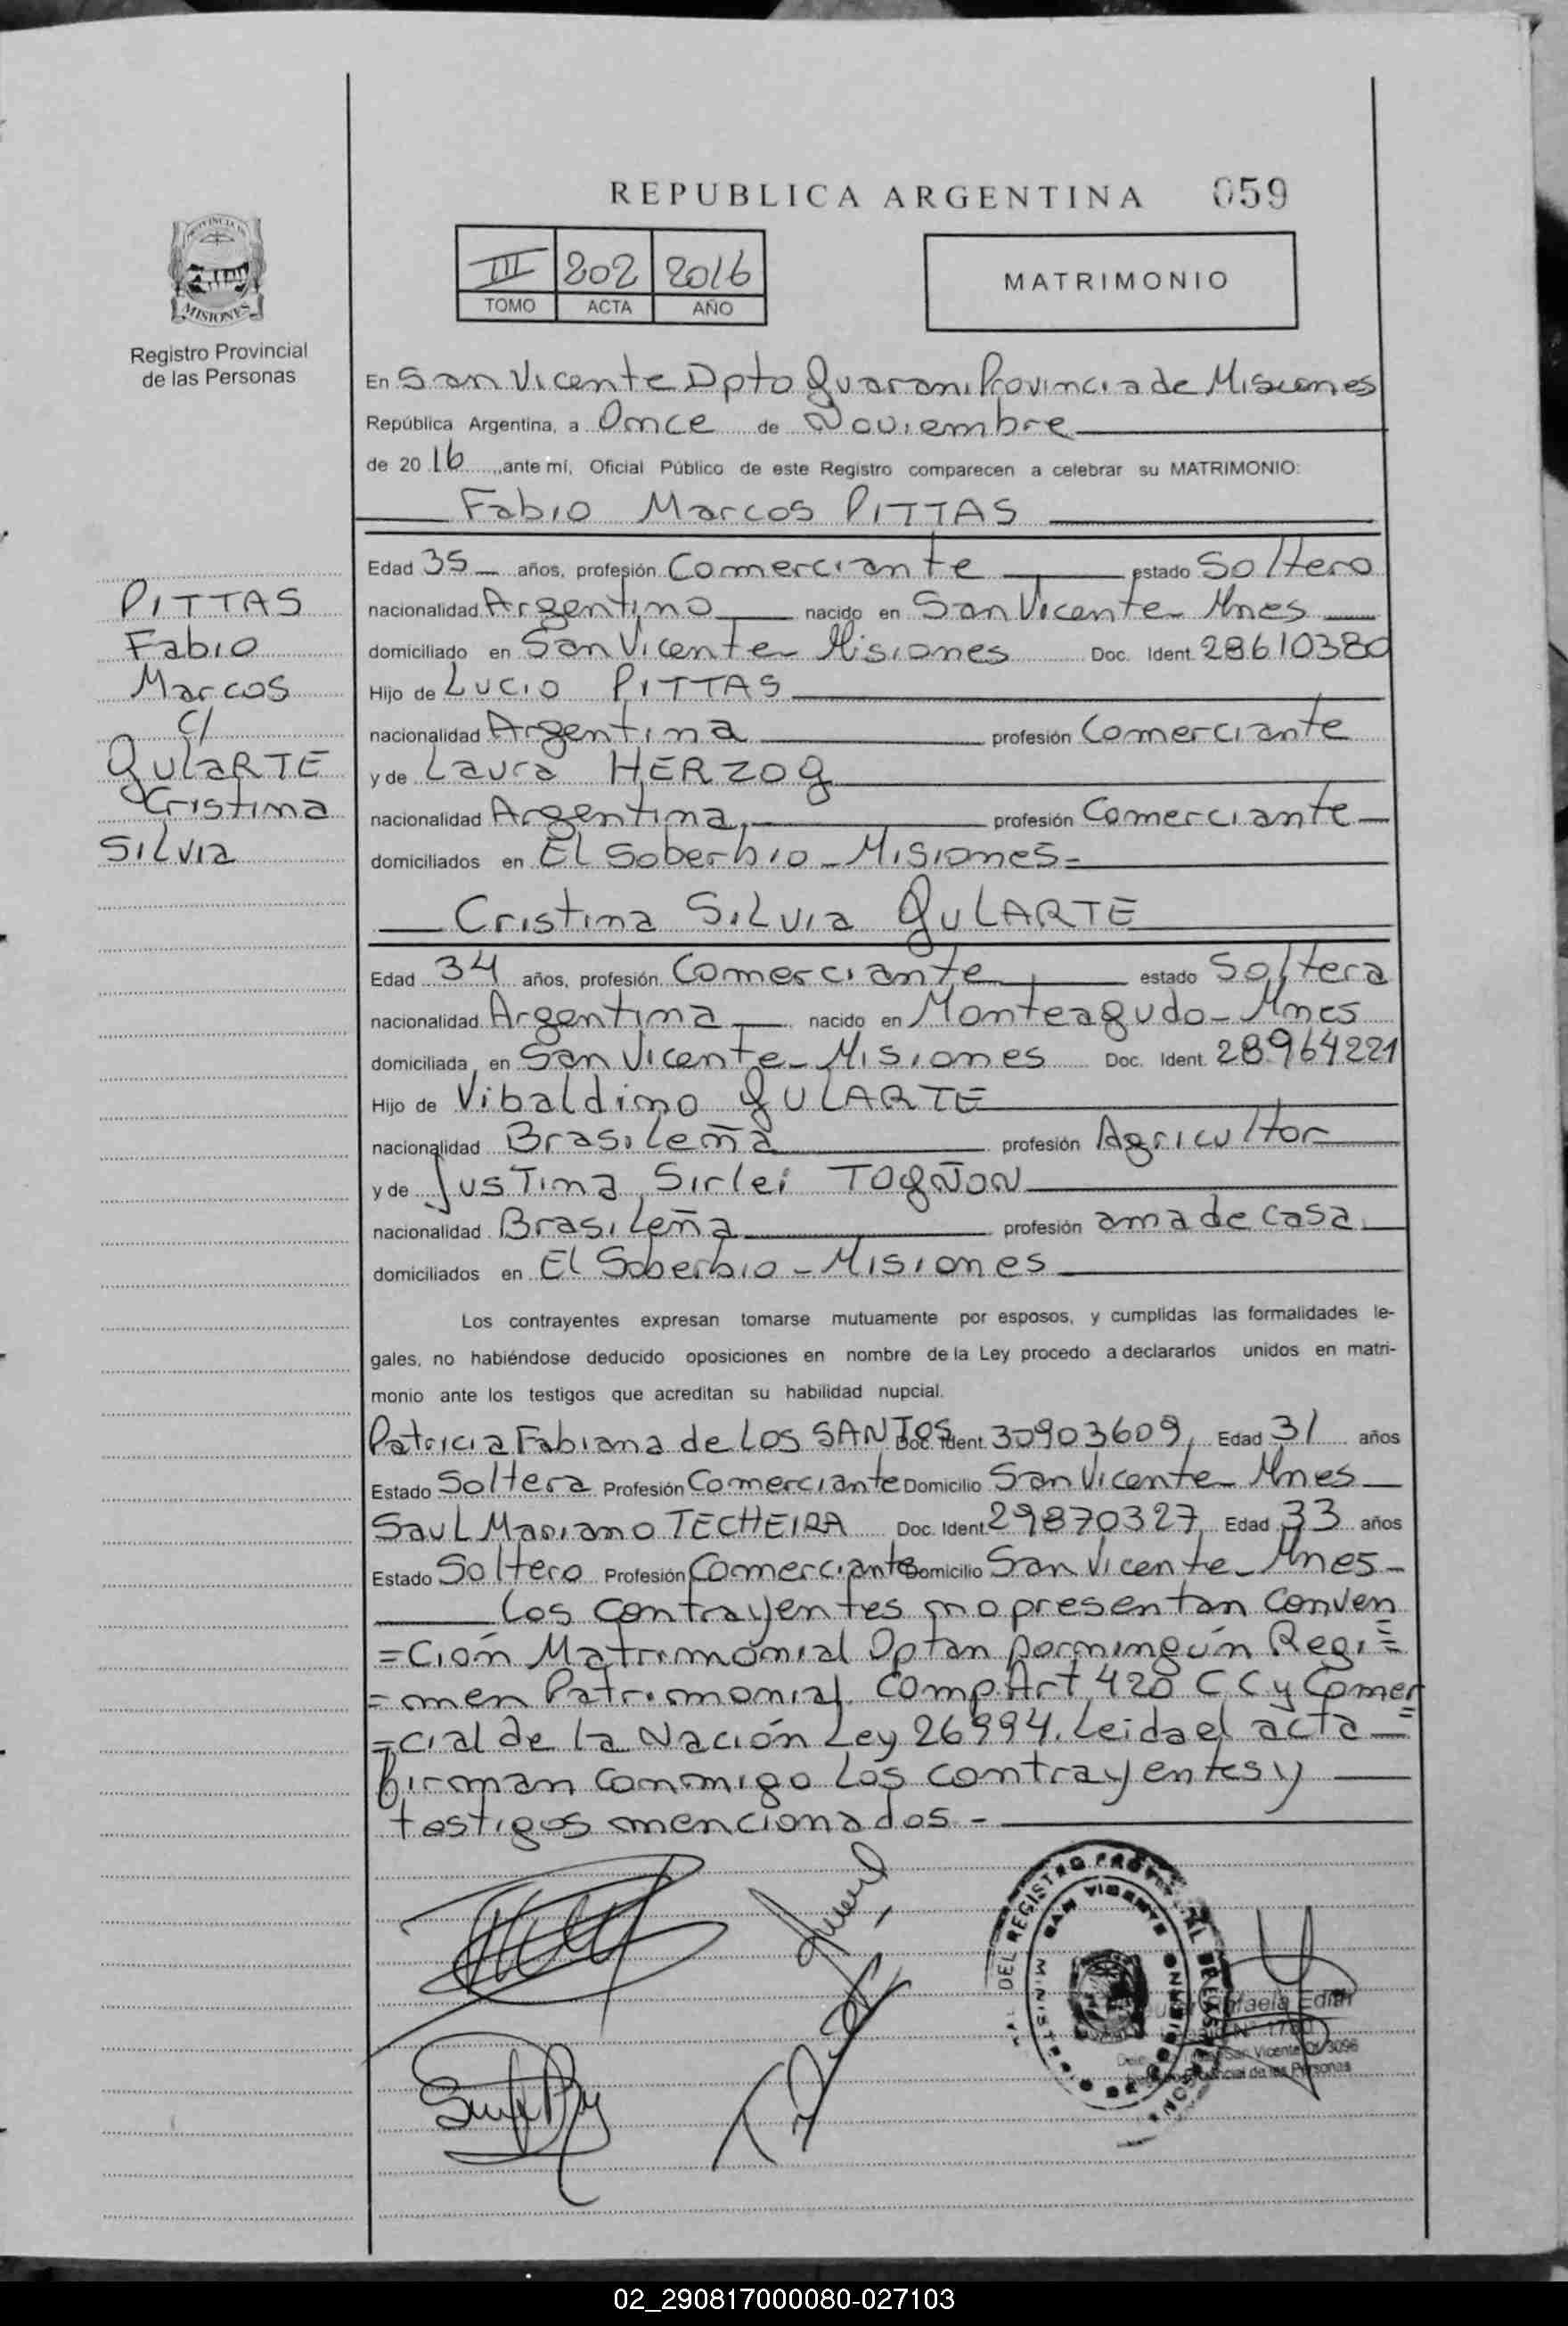 REPUBLICA ARGENTINA 059
PROVINCIA DE
MISIONES
Registro Provincial
de las Personas
III 202 2016
TOMO ACTA AÑO
MATRIMONIO
En San Vicente Dpto Guarani Provincia de Misiones
República Argentina, a Once de Noviembre
de 20 16 ,ante mí, Oficial Público de este Registro comparecen a celebrar su MATRIMONIO:
Fabio Marcos PITTAS
PITTAS
Fabio
Marcos
C/
GulaRTE
Cristina
Silvia
Edad 35 años, profesión Comerciante estado Soltero
nacionalidad Argentino nacido en San Vicente - Mnes
domiciliado en San Vicente - Misiones Doc. Ident. 28610380
Hijo de Lucio PITTAS
nacionalidad Argentina profesión Comerciante
y de Laura HERZOg
nacionalidad Argentina profesión Comerciante
domiciliados en El Soberbio - Misiones =
Cristina Silvia GULARTE
Edad 34 años, profesión Comerciante estado Soltera
nacionalidad Argentina nacido en Monteagudo - Mnes
domiciliada en San Vicente - Misiones Doc. Ident. 28964221
Hijo de Vibaldino GULARTE
nacionalidad Brasileña profesión Agricultor
y de Justina Sirlei TOgÑON
nacionalidad Brasileña profesión ama de casa
domiciliados en El Soberbio - Misiones
Los contrayentes expresan tomarse mutuamente por esposos, y cumplidas las formalidades le-
gales, no habiéndose deducido oposiciones en nombre de la Ley procedo a declararlos unidos en matri-
monio ante los testigos que acreditan su habilidad nupcial.
Patricia Fabiana de Los SANTOS Doc. Ident. 30903609, Edad 31 años
Estado Soltera Profesión Comerciante Domicilio San Vicente - Mnes
Saul Mariano TECHEIRA Doc. Ident. 29870327, Edad 33 años
Estado Soltero Profesión Comerciante Domicilio San Vicente - Mnes -
Los contrayentes no presentan Conven
=ción Matrimonial Optan por ningún Regi =
=men Patrimonial Comp. Art 420 C C y Comer
=cial de la Nación Ley 26994. Leida el acta
firman conmigo los contrayentes y
testigos mencionados -
DEL REGISTRO
SAN VICENTE
MISIONES
Rafaela Edith
San Vicente Of 3096
Provincial de las Personas
02_290817000080-027103